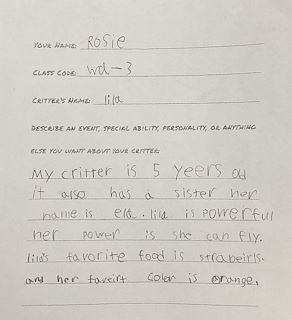 YOUR NAME: Rosie
CLASS CODE: wd-3
CRITTER'S NAME: lila
DESCRIBE AN EVENT, SPECIAL ABILITY, PERSONALITY, OR ANYTHING
ELSE YOU WANT ABOUT YOUR CRITTER:
My critter is 5 yeers old
it also has a sister her
name is ela. lila is powerful
her power is she can fly.
lila's favorite food is strabeirls.
and her faveirt Coler is orange.